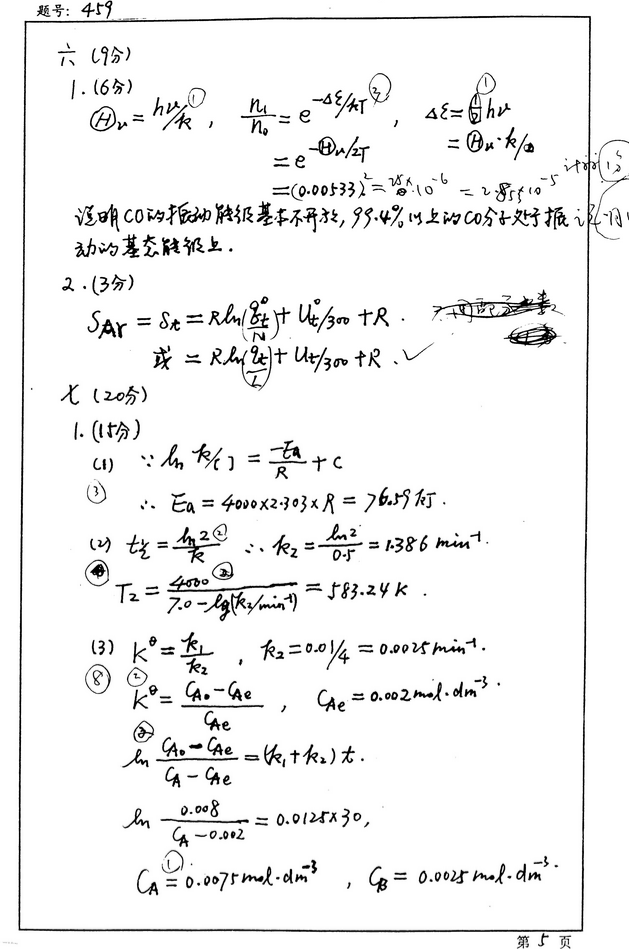 题号: 459
六 (9分)
1. (6分)
Ⓗν = hν/k ①, n₁/n₀ = e^(-Δε/kT) ②, Δε = ½hν ①
= e^(-Ⓗν/2T) = Ⓗν·k/2
= (0.00533)² = 28×10⁻⁶ = 2.85×10⁻⁵
说明CO的振动能级基本不开放, 99.4%以上的CO分子处于振
动的基态能级上.
2. (3分)
S_Ar = S_t = R ln(q_t°/N) + U_t°/300 + R.
或 = R ln(q_t/L) + U_t/300 + R. ✓
七 (20分)
1. (15分)
(1) ∵ ln k/[ ] = -Ea/R + C
③ ∴ Ea = 4000×2.303×R = 76.59 kJ.
(2) t½ = ln2/k ② ∴ k₂ = ln2/0.5 = 1.386 min⁻¹.
④ T₂ = 4000/(7.0 - lg(k₂/min⁻¹)) ② = 583.24 K.
(3) K^θ = k₁/k₂, k₂ = 0.01/4 = 0.0025 min⁻¹.
⑧ ② K^θ = (C_A₀ - C_Ae)/C_Ae, C_Ae = 0.002 mol·dm⁻³.
② ln (C_A₀ - C_Ae)/(C_A - C_Ae) = (k₁ + k₂)t.
ln 0.008/(C_A - 0.002) = 0.0125×30,
C_A ① = 0.0075 mol·dm⁻³, C_B = 0.0025 mol·dm⁻³.
第 5 页